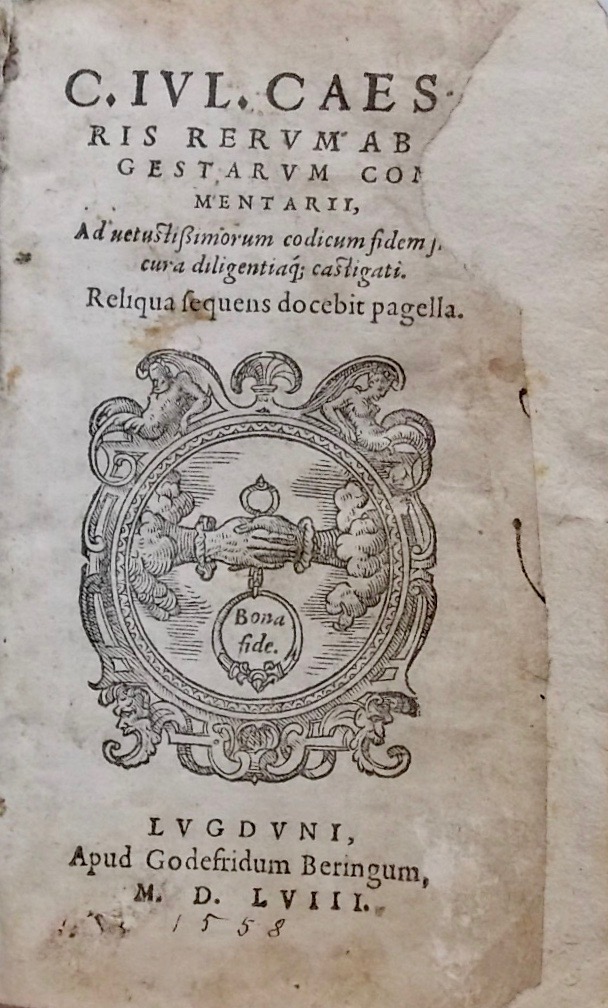 C. IVL. CAES
RIS RERVM AB
GESTARVM CO
MENTARII,
Ad uetustißimorum codicum fidem
cura diligentiaq́; castigati.
Reliqua ſequens docebit pagella.
Bona
fide.
LVGDVNI,
Apud Godefridum Beringum,
M. D. LVIII.
1558